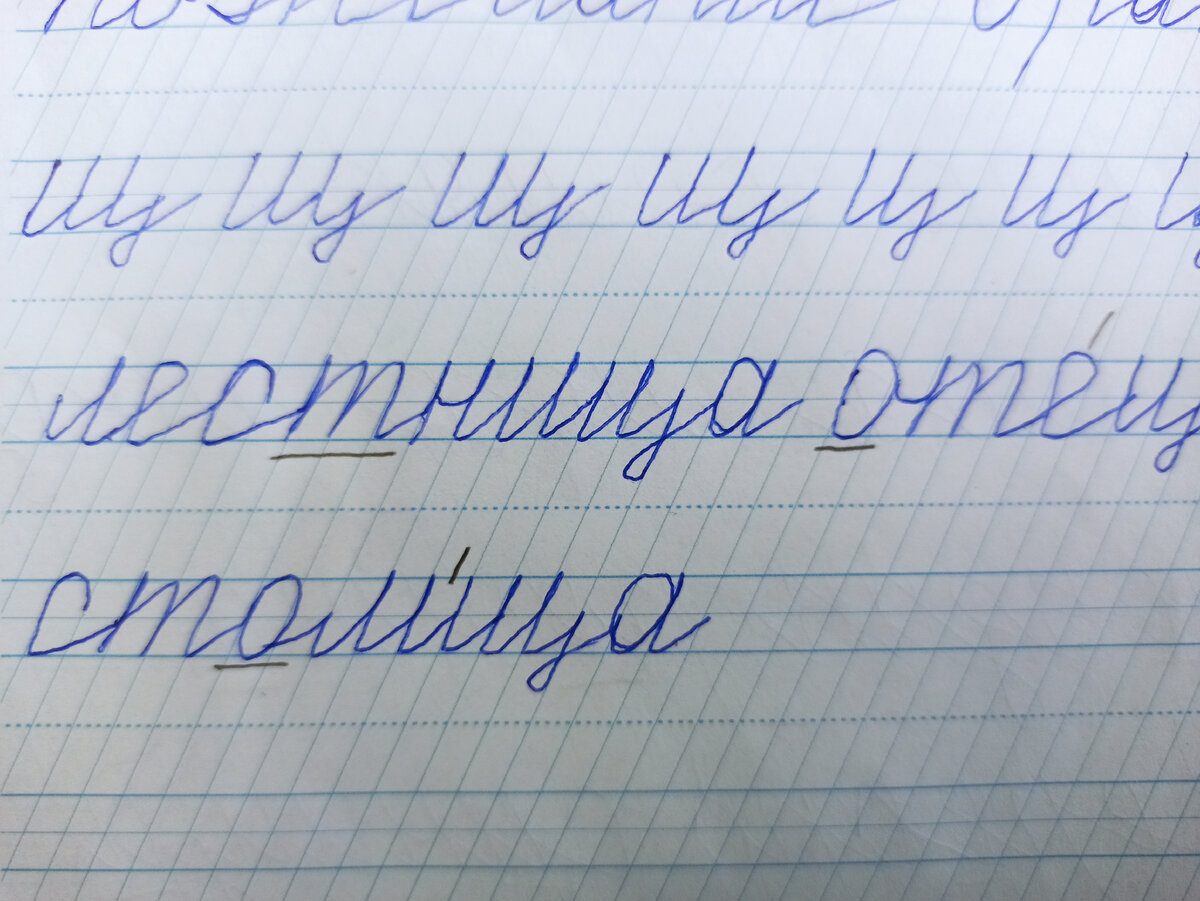 щ щ щ щ ц ц
лестница оте́ц
столи́ца